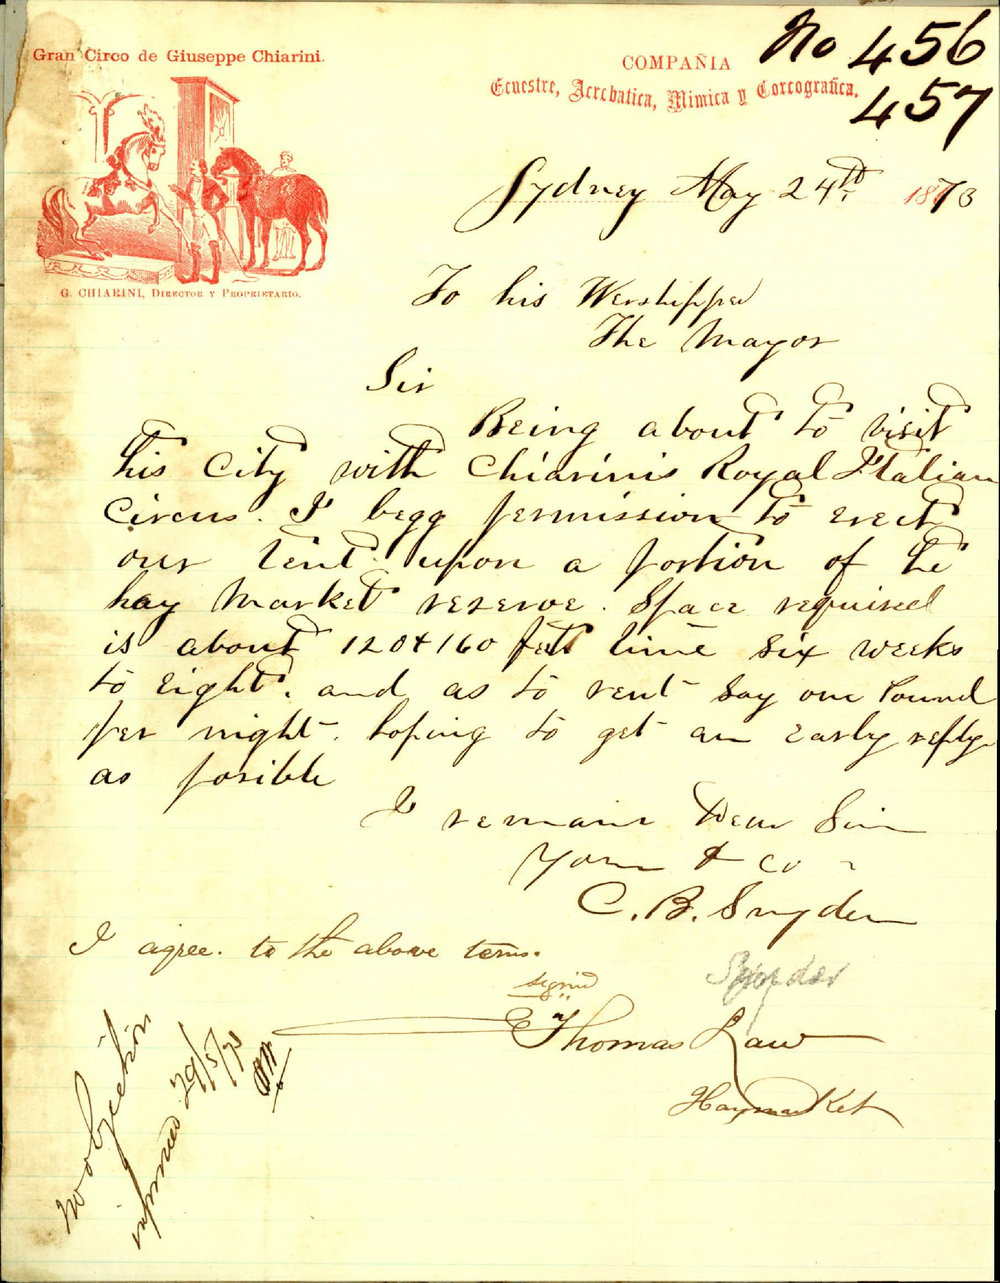 No 456
457
Gran Circo de Giuseppe Chiarini.
COMPAÑIA
Ecuestre, Acrobatica, Mimica y Coreografica.
G. CHIARINI, DIRECTOR Y PROPRIETARIO.
Sydney May 24th 1873
To his Worshipped
The Mayor
Sir
Being about to visit
this City with Chiarinis Royal Italian
Circus. I begg permission to erect
our tent upon a portion of the
hay Market reserve. Space required
is about 120 + 160 feet time six weeks
to Eight. and as to rent say one Pound
per night. hoping to get an early reply
as posible
I remain Dear Sir
Yours & Co
C. B. Snyder
I agree. to the above terms.
Snyder
signed
Thomas Law
Haymarket
No objection
informed 29/5/73